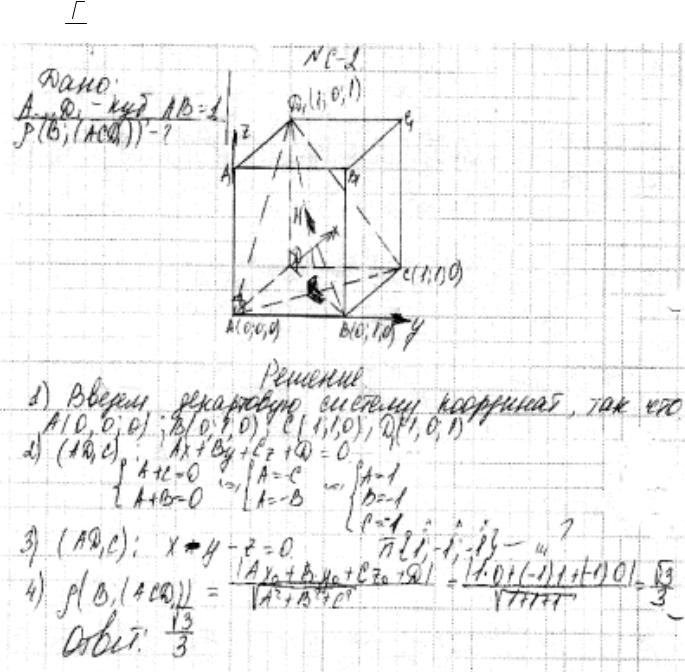 Г
№ С-2
Дано:
A...D₁ – куб AB=1
ρ(B; (ACD₁)) - ?
D₁(1;0;1)
C₁
z
A₁
B₁
H
x
D
C(1;1;0)
A(0;0;0)
B(0;1;0)
y
Решение
1) Введем декартовую систему координат, так что
A(0;0;0); B(0;1;0) C(1;1;0), D₁(1;0;1)
2) (AD₁C): Ax+By+Cz+D=0
{A+C=0 {A=-C {A=1
{A+B=0 {A=-B {B=-1
C=-1
3) (AD₁C): x-y-z=0 n{1;-1;-1} — ?
4) ρ(B,(ACD₁)) = |Ax₀+By₀+Cz₀+D| / √A²+B²+C² = |1·0+(-1)1+(-1)0| / √1+1+1 = √3/3
Ответ: √3/3